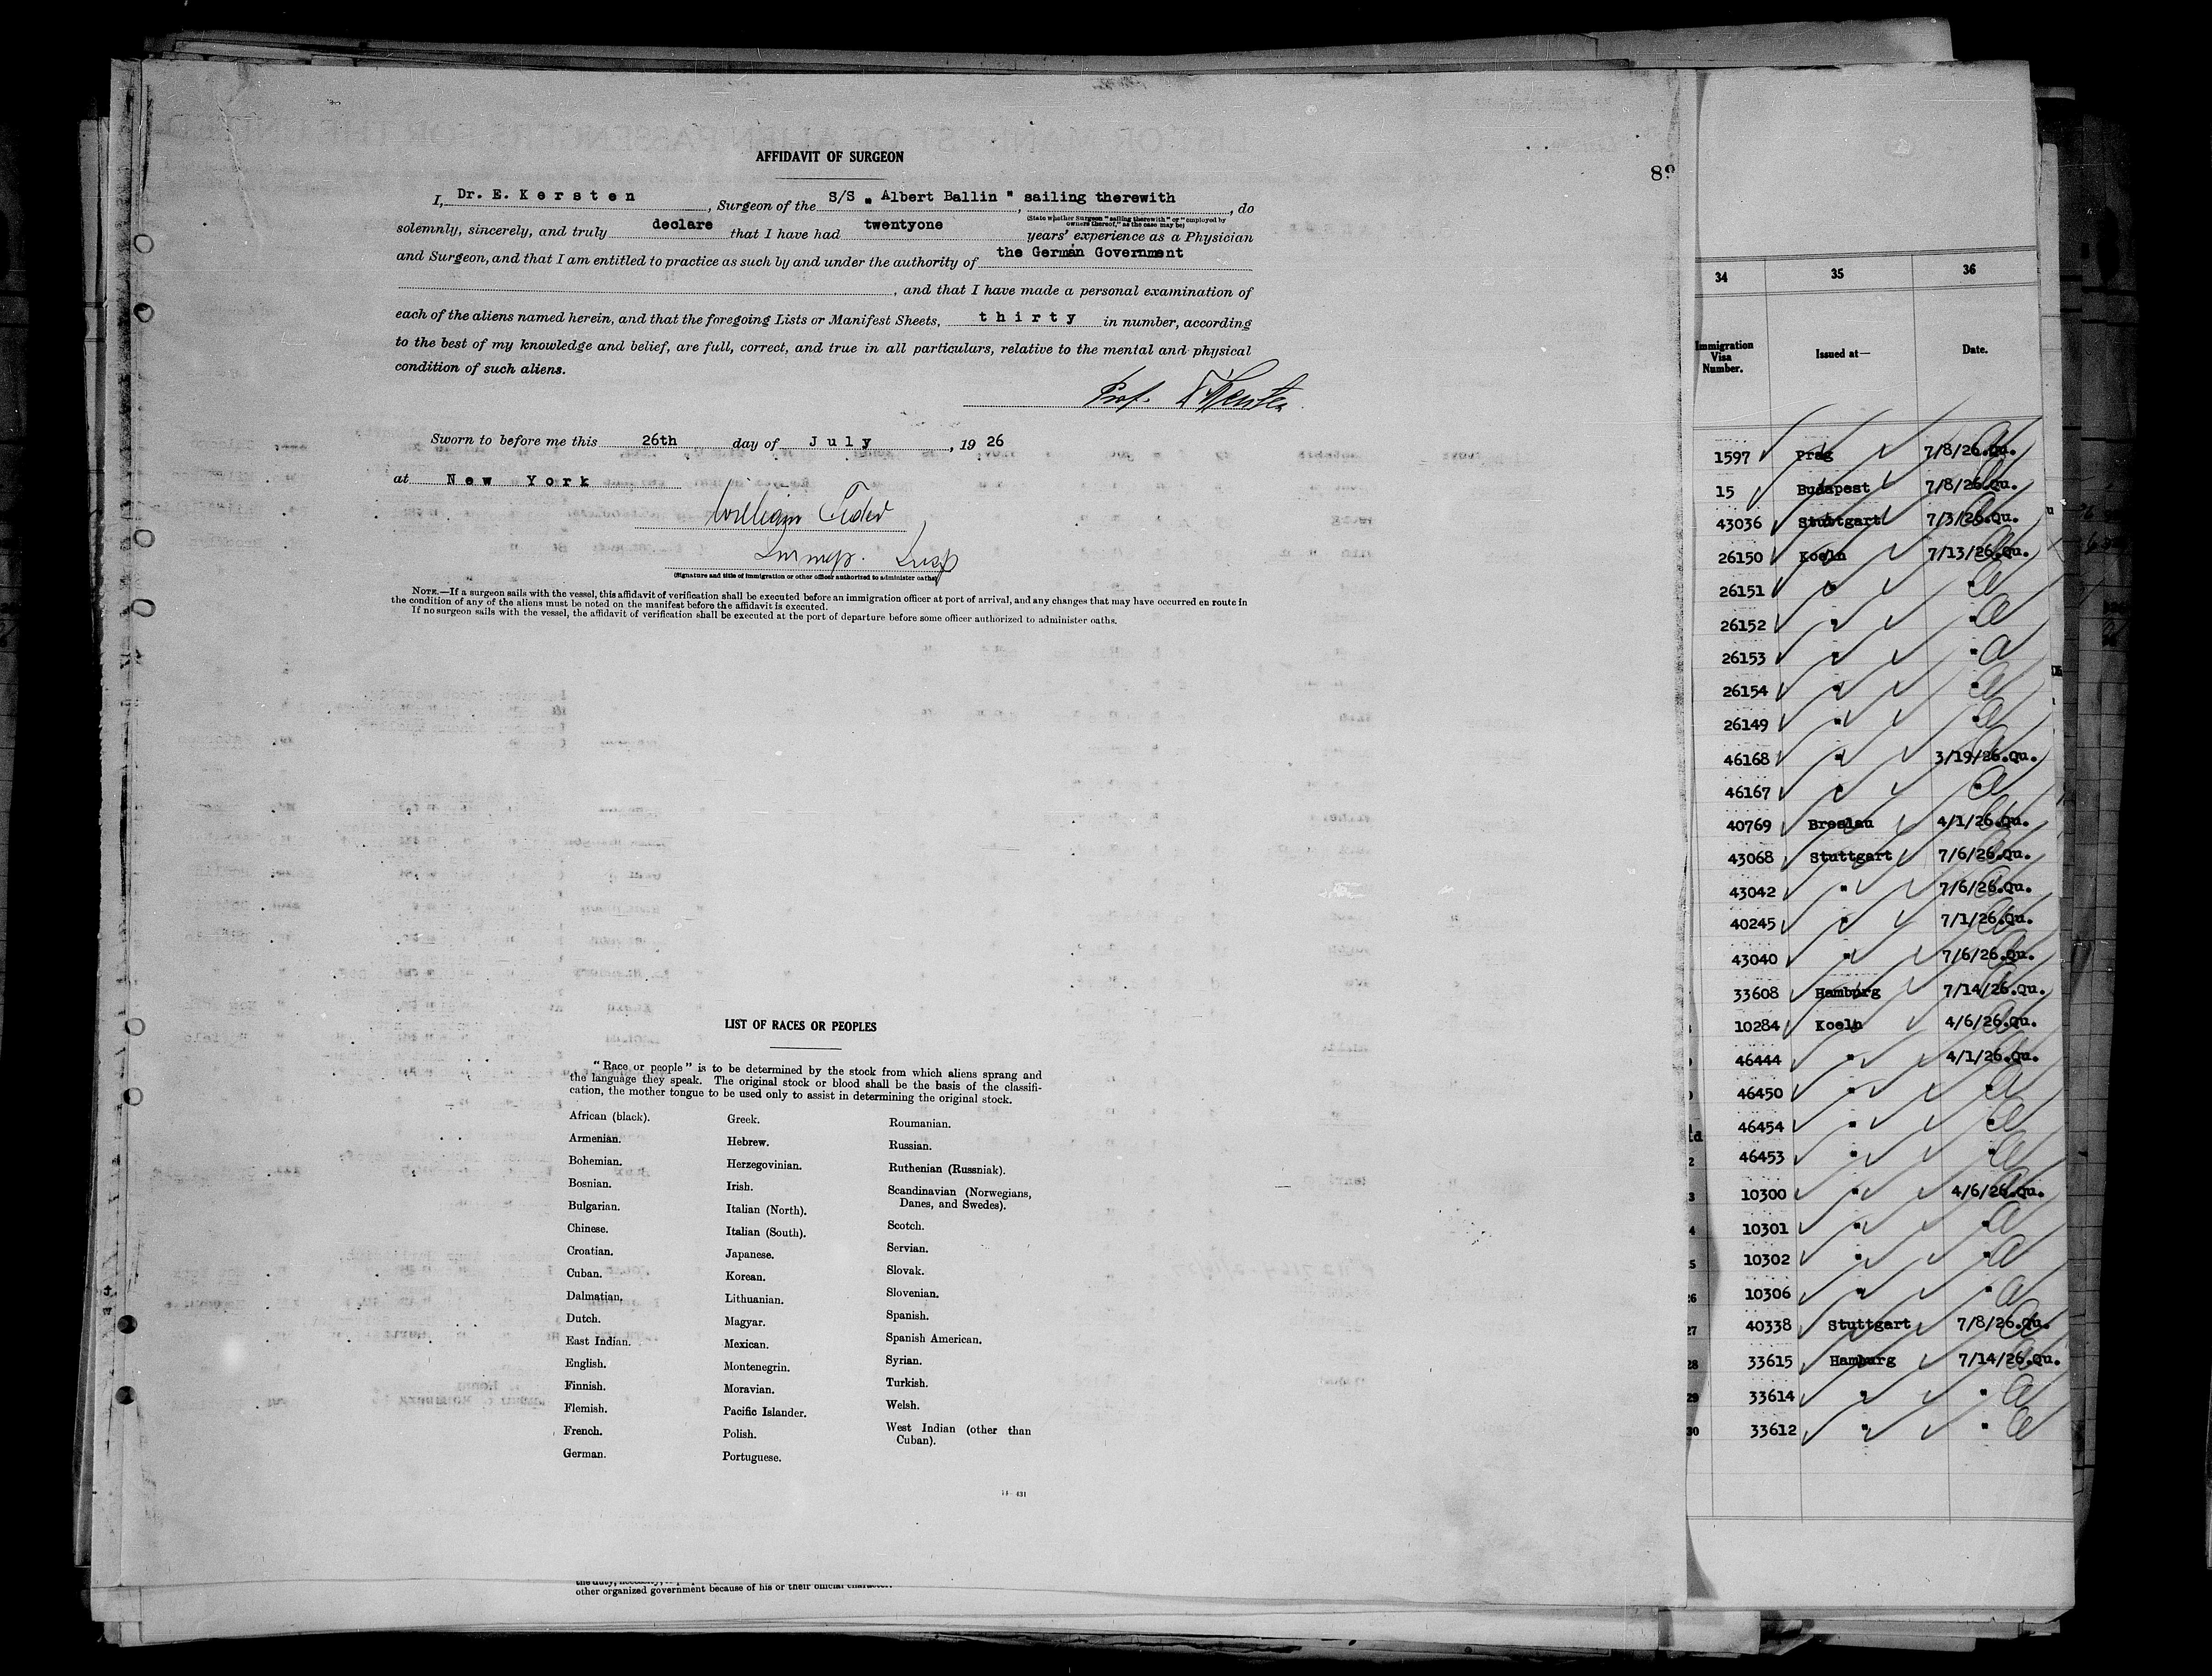 AFFIDAVIT OF SURGEON
89
I, Dr. E. Kersten, Surgeon of the S/S „ Albert Ballin " , sailing therewith, do
(State whether Surgeon "sailing therewith" or "employed by owners thereof," as the case may be)
solemnly, sincerely, and truly declare that I have had twentyone years' experience as a Physician
and Surgeon, and that I am entitled to practice as such by and under the authority of the German Government
, and that I have made a personal examination of
each of the aliens named herein, and that the foregoing Lists or Manifest Sheets, thirty in number, according
to the best of my knowledge and belief, are full, correct, and true in all particulars, relative to the mental and physical
condition of such aliens.
Prof.
Sworn to before me this 26th day of July, 19 26
at New York
William
Immgr. Insp
(Signature and title of immigration or other officer authorized to administer oaths)
NOTE.—If a surgeon sails with the vessel, this affidavit of verification shall be executed before an immigration officer at port of arrival, and any changes that may have occurred en route in
the condition of any of the aliens must be noted on the manifest before the affidavit is executed.
If no surgeon sails with the vessel, the affidavit of verification shall be executed at the port of departure before some officer authorized to administer oaths.
LIST OF RACES OR PEOPLES
"Race or people" is to be determined by the stock from which aliens sprang and
the language they speak. The original stock or blood shall be the basis of the classifi-
cation, the mother tongue to be used only to assist in determining the original stock.
African (black).
Armenian.
Bohemian.
Bosnian.
Bulgarian.
Chinese.
Croatian.
Cuban.
Dalmatian.
Dutch.
East Indian.
English.
Finnish.
Flemish.
French.
German.
Greek.
Hebrew.
Herzegovinian.
Irish.
Italian (North).
Italian (South).
Japanese.
Korean.
Lithuanian.
Magyar.
Mexican.
Montenegrin.
Moravian.
Pacific Islander.
Polish.
Portuguese.
Roumanian.
Russian.
Ruthenian (Russniak).
Scandinavian (Norwegians,
Danes, and Swedes).
Scotch.
Servian.
Slovak.
Slovenian.
Spanish.
Spanish American.
Syrian.
Turkish.
Welsh.
West Indian (other than
Cuban).
14—431
other organized government because of his or their official character.
34 35 36
Immigration Visa Number. Issued at— Date.
1597 Prag 7/8/26.Qu.
15 Budapest 7/8/26.Qu.
43036 Stuttgart 7/3/26.Qu.
26150 Koeln 7/13/26.Qu.
26151 " "
26152 " "
26153 " "
26154 " "
26149 " "
46168 " 3/19/26.Qu.
46167 " "
40769 Breslau 4/1/26.Qu.
43068 Stuttgart 7/6/26.Qu.
43042 " 7/6/26.Qu.
40245 " 7/1/26.Qu.
43040 " 7/6/26.Qu.
33608 Hamburg 7/14/26.Qu.
10284 Koeln 4/6/26.Qu.
46444 " 4/1/26.Qu.
46450 " "
46454 " "
2 46453 " "
3 10300 " 4/6/26.Qu.
4 10301 " "
5 10302 " "
26 10306 " "
27 40338 Stuttgart 7/8/26.Qu.
28 33615 Hamburg 7/14/26.Qu.
29 33614 " "
30 33612 " "